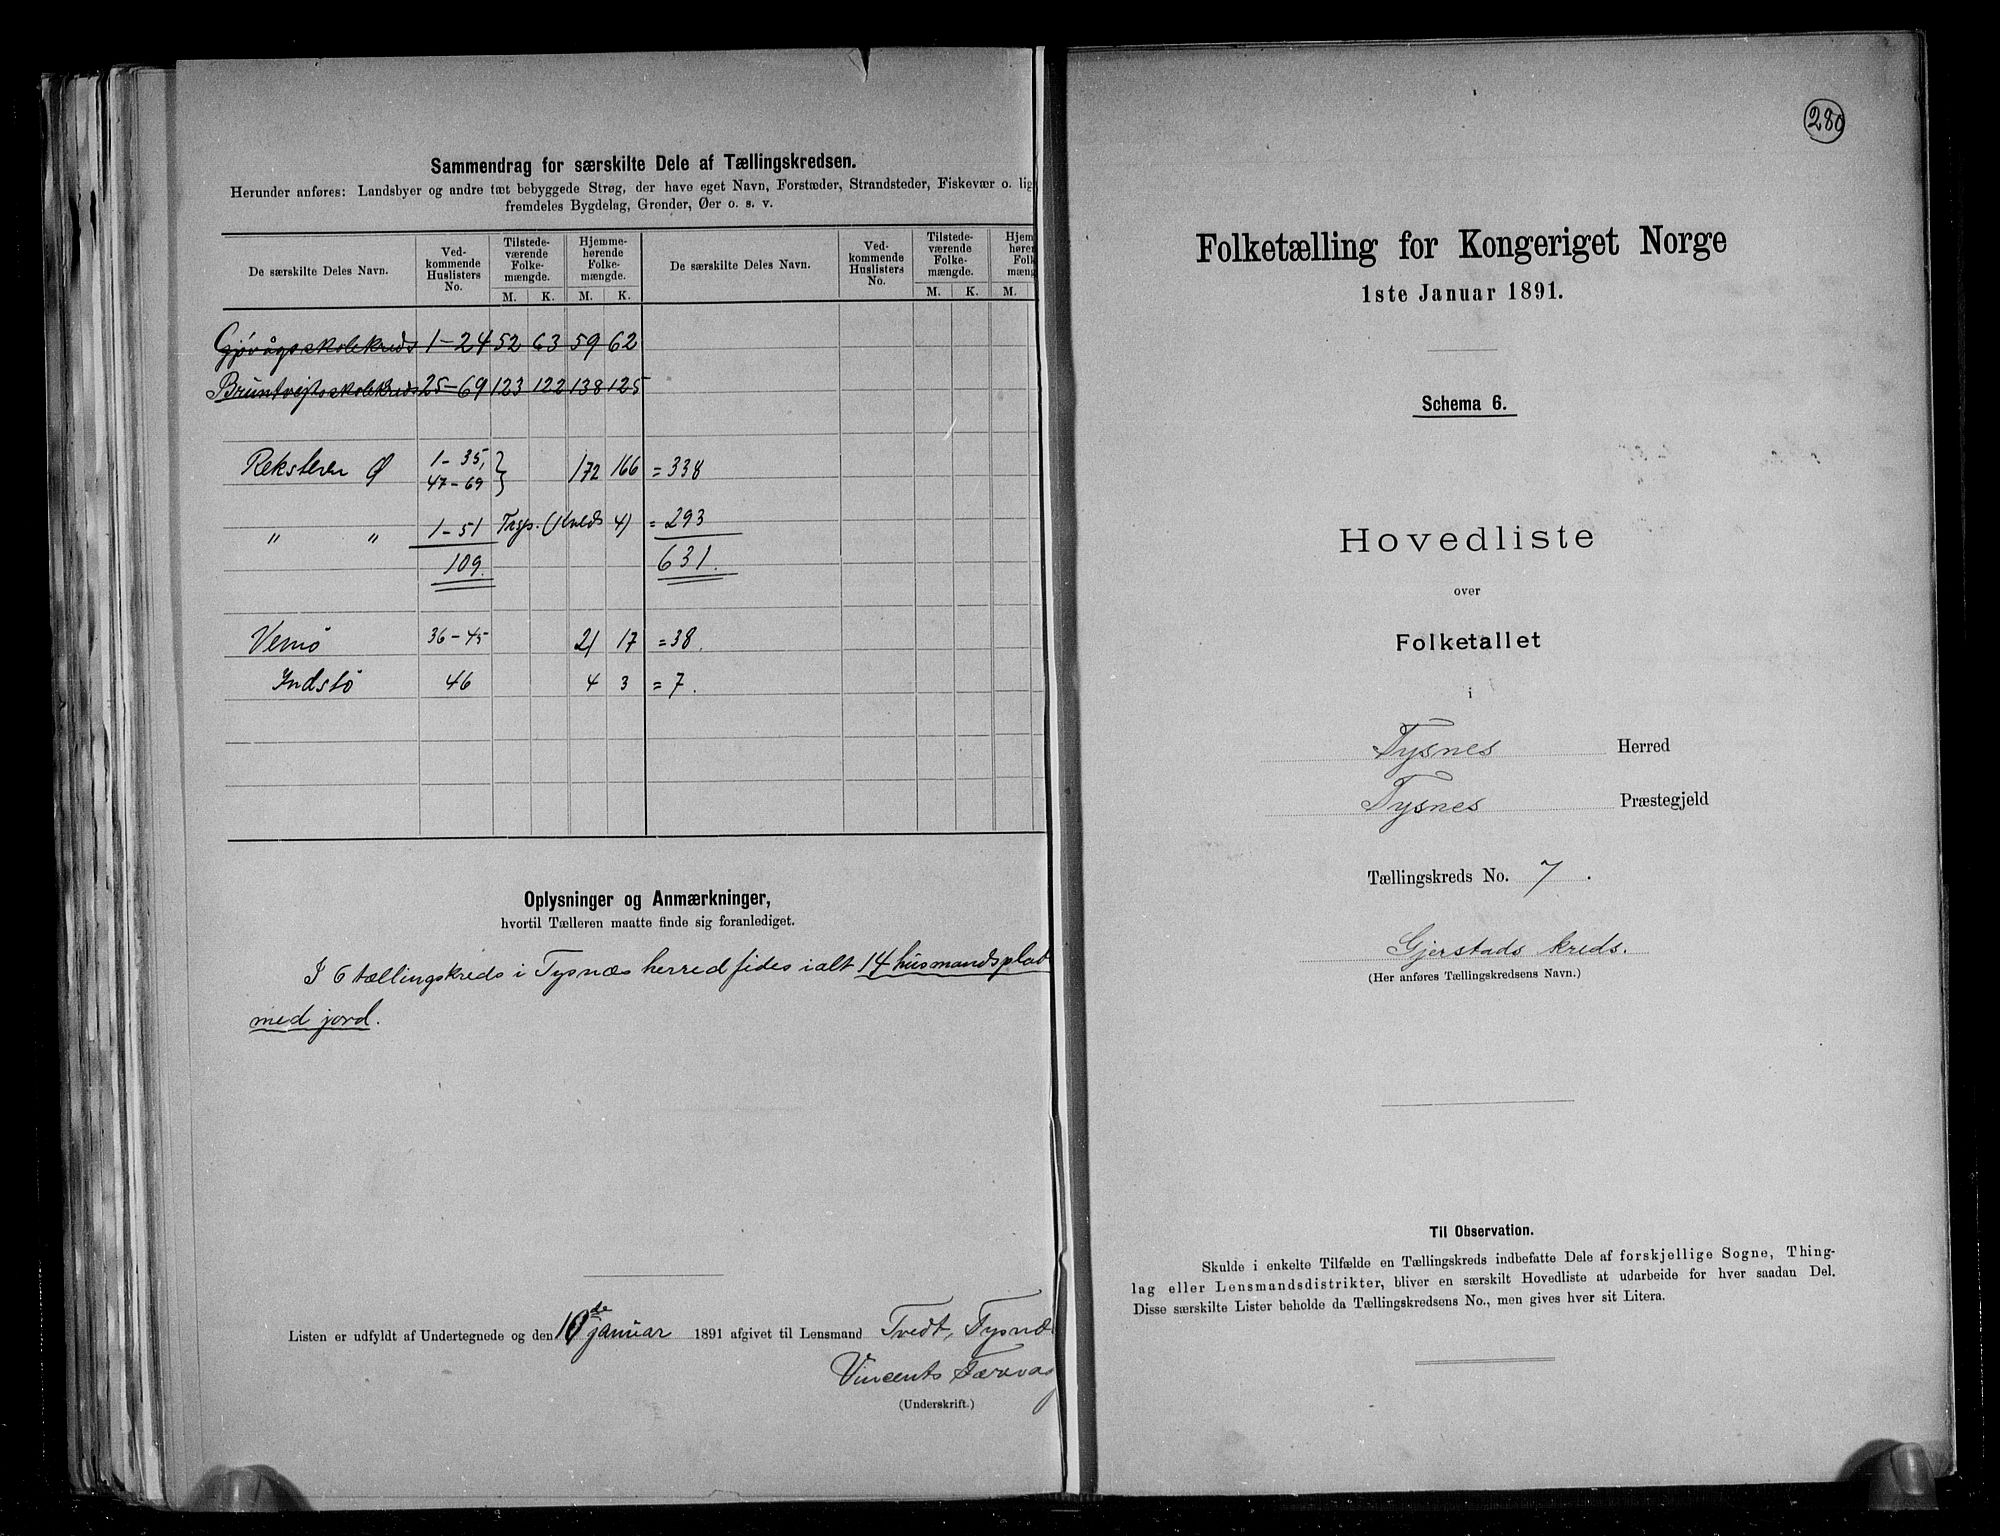 Sammendrag for særskilte Dele af Tællingskredsen.
Herunder anføres: Landsbyer og andre tæt bebyggede Strøg, der have eget Navn, Forstæder, Strandsteder, Fiskevær o. lig
fremdeles Bygdelag, Grender, Øer o. s. v.
De særskilte Deles Navn. Ved-kommende Huslisters No. Tilstede-værende Folke-mængde. Hjemme-hørende Folke-mængde. De særskilte Deles Navn. Ved-kommende Huslisters No. Tilstede-værende Folke-mængde. Hjem høre Folk mæng
M. K. M. K. M. K. M.
Gjøvågsskolekreds 1-24 52 63 59 62
Bruntvejtsskolekreds 25-69 123 122 138 125
Reksteren Ø 1-35, 47-69 } 172 166 = 338
" " 1-51 Tnsp. (Kreds 4) = 293
109. 631.
Vernø 36-45 21 17 = 38.
Indstø 46 4 3 = 7.
Oplysninger og Anmærkninger,
hvortil Tælleren maatte finde sig foranlediget.
I 6 tællingskreds i Tysnæs herred fides ialt 14 husmandsplad
med jord.
Listen er udfyldt af Undertegnede og den 10de januar 1891 afgivet til Lensmand Tvedt, Tysnæ
Vincents Færevaag
(Underskrift.)
280
Folketælling for Kongeriget Norge
1ste Januar 1891.
Schema 6.
Hovedliste
over
Folketallet
i
Tysnes Herred
Tysnes Præstegjeld
Tællingskreds No. 7.
Gjerstads kreds.
(Her anføres Tællingskredsens Navn.)
Til Observation.
Skulde i enkelte Tilfælde en Tællingskreds indbefatte Dele af forskjellige Sogne, Thing-
lag eller Lensmandsdistrikter, bliver en særskilt Hovedliste at udarbeide for hver saadan Del.
Disse særskilte Lister beholde da Tællingskredsens No., men gives hver sit Litera.